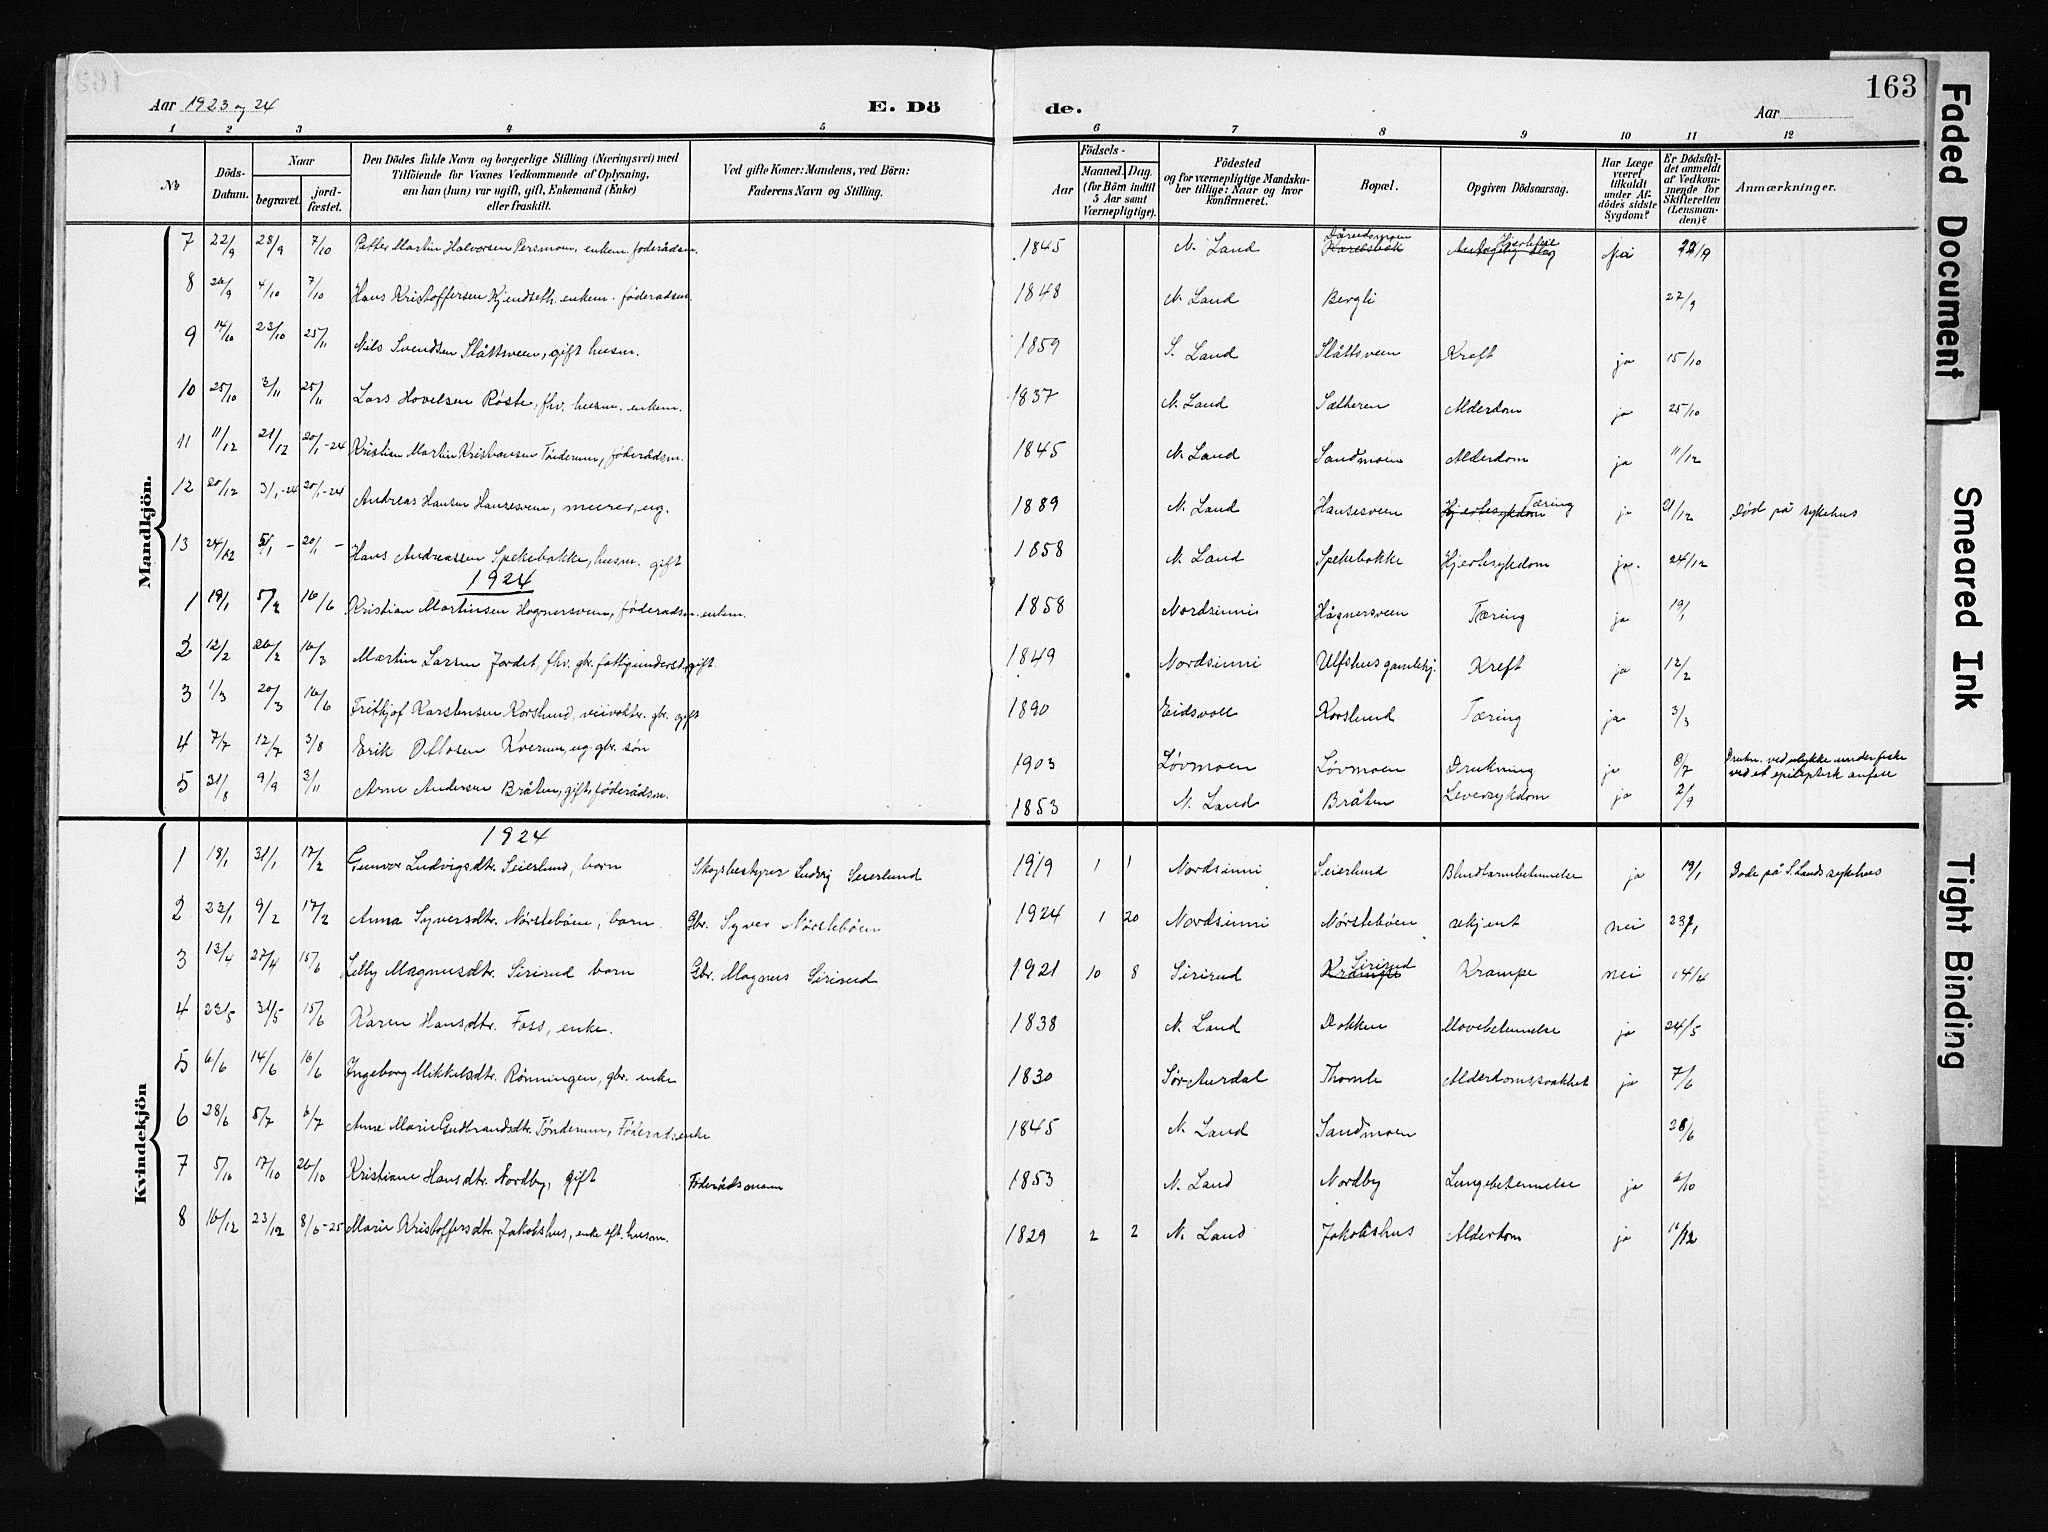 163
Aar 1923 og 24 E. Dö de. Aar
1 2 3 4 5 6 7 8 9 10 11 12
No Döds-Datum. Naar begravet. jord-fæstet. Den Dödes fulde Navn og borgerlige Stilling (Næringsvei) med Tilföiende for Voxnes Vedkommende af Oplysning, om han (hun) var ugift, gift, Enkemand (Enke) eller fraskilt. Ved gifte Koner: Mandens, ved Börn: Faderens Navn og Stilling. Födsels- Aar Maaned. Dag. (for Börn indtil 5 Aar samt Værnepligtige). Födested og for værnepligtige Mandska-ber tillige: Naar og hvor konfirmeret. Bopæl. Opgiven Dödsaarsag. Har Læge været tilkaldt under Af-dödes sidste Sygdom? Er Dödsfal-det anmeldt af Vedkom-mende for Skifteretten (Lensman-den)? Anmærkninger.
Mandkjön.
7 22/9 28/9 7/10 Petter Martin Halvorsen Persmoen, enkem. føderådsm. 1845 N. Land
8 26/9 4/10 7/10 Hans Kristoffersen Kjendseth. enkem. føderadsm. 1848 N. Land Bergli 27/9
9 14/10 23/10 25/11 Nils Svendsen Slåttsveen, gift husm. 1859 S. Land Slåttsveen Kreft ja 15/10
10 25/10 3/11 25/11 Lars Hovelsen Røste, fhv. husm. enkem. 1837 N. Land Sætheren Alderdom ja 25/10
11 11/12 21/12 20/1-24 Kristian Martin Kristiansen Tønderum, føderådsm. 1845 N. Land Sandmoen Alderdom ja 11/12
12 20/12 3/1-24 20/1-24 Andreas Hansen Hansesveen, murer, ug. 1889 N. Land Hansesveen Hjertesykdom Tæring ja 21/12 Død på sykehus
13 24/12 5/1 - 20/1 - Hans Andreassen Spekebakke, husm. gift 1858 N. Land Spekebakke Hjertesykdom ja. 24/12
1924
1 19/1 5/2 16/6 Kristian Martinsen Hognersveen, føderadsm. enkem. 1858 Nordsinni Hågnersveen Tæring ja 19/1
2 12/2 20/2 16/3 Martin Larsen Jordet, fhv. gbr. fattigunderst. gift. 1849 Nordsinni Ulfshus gamlehj. Kreft ja 12/2
3 1/3 20/3 16/6 Frithjof Karstensen Korslund, veivokter. gbr. gift 1890 Eidsvoll Korslund Tæring ja 3/3
4 7/7 12/7 3/8 Erik Ottosen Kverum, ug. gbr. søn 1903 Løvmoen Løvmoen Drukning ja 8/7 Drukn. ved ulykke under fiske
ved et epileptisk anfall
5 31/8 9/9 3/11 Arne Andersen Bråten, gift, føderådsm. 1853 N. Land Bråten Leversykdom ja 2/9
Kvindekjön
1924
1 18/1 31/1 17/2 Gunvor Ludvigsdtr. Seierlund, barn Skogbestyrer Ludvig Seierlund 1919 1 1 Nordsinni Seierlund Blindtarmbetennelse ja 19/1 Døde på S. Lands sykehus
2 23/1 9/2 17/2 Anna Syversdtr. Nørstebøen, barn Gbr. Syver Nørstebøen 1924 1 20 Nordsinni Nørstebøen ukjent nei 23/1
3 13/4 27/4 15/6 Lelly Magnusdtr. Sirirud barn Gbr. Magnus Sirirud 1921 10 8 Sirirud Krampe Sirirud Krampe nei 14/4
4 23/5 31/5 15/6 Karen Hansdtr. Foss, enke. 1838 N. Land Dokken Mavebetennelse ja 24/5
5 6/6 14/6 16/6 Ingeborg Mikkelsdtr. Rønningen, gbr. enke 1830 Sør Aurdal Thomle Alderdomssvakhet ja 7/6
6 28/6 5/7 6/7 Anne Marie Gudbrandsdtr. Tønderum, Føderadsenke 1845 N. Land Sandmoen 28/6
7 5/10 17/10 26/10 Kristiane Hansdtr. Nordby, gift Føderådsmann 1853 N. Land Nordby Lungebetennelse ja 6/10
8 16/12 23/12 8/6-25 Marie Kristoffersdtr. Jakobshus, enke eft. husm. 1829 2 2 N. Land Jakobshus Alderdom ja
Faded Document
Smeared Ink
Tight Binding